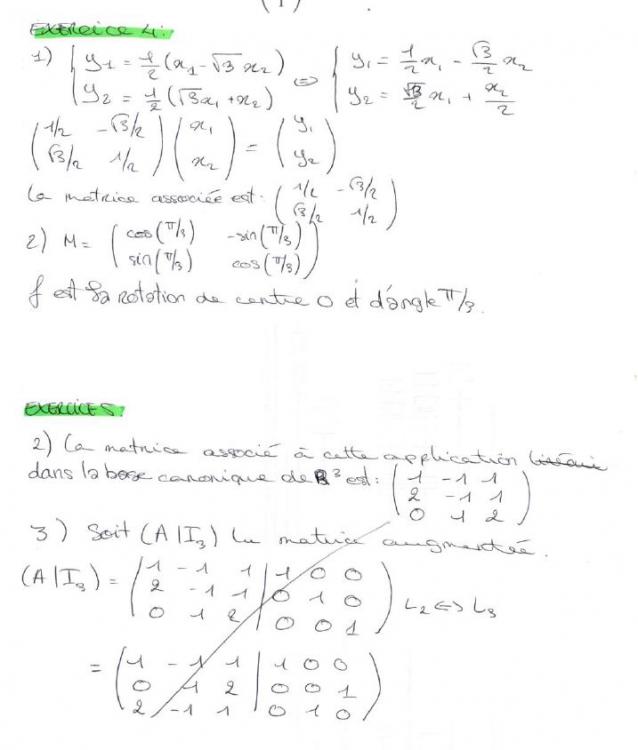 (1)
EXERCICE 4:
1) { y1 = 1/2 (x1 - √3 x2) ⇔ { y1 = 1/2 x1 - √3/2 x2
y2 = 1/2 (√3 x1 + x2) y2 = √3/2 x1 + x2/2
(1/2 -√3/2) (x1) = (y1)
(√3/2 1/2) (x2) (y2)
La matrice associée est: (1/2 -√3/2)
(√3/2 1/2)
2) M = (cos(π/3) -sin(π/3))
(sin(π/3) cos(π/3))
f est la rotation de centre O et d'angle π/3.
EXERCICE 5:
2) La matrice associé à cette application
dans la base canonique de R³ est: (1 -1 1)
(2 -1 1)
(0 1 2)
3) Soit (A|I3) la matrice augmentée.
(A|I3) = (1 -1 1 | 1 0 0)
(2 -1 1 | 0 1 0) L2 ⇔ L3
(0 1 2 | 0 0 1)
= (1 -1 1 | 1 0 0)
(0 1 2 | 0 0 1)
(2 -1 1 | 0 1 0)